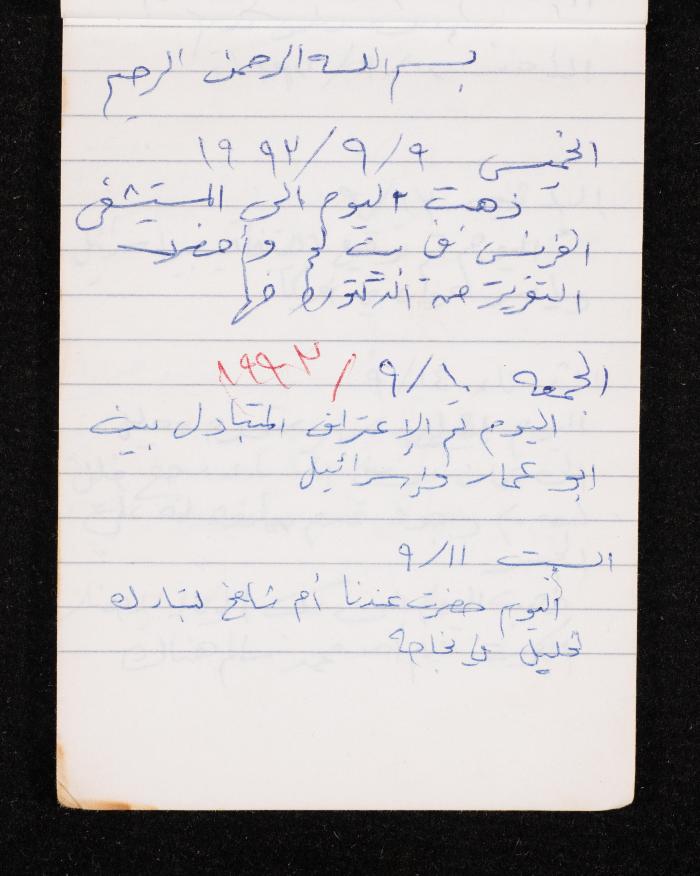 بسم الله الرحمن الرحيم
الخميس ٩/٩/١٩٩٣
ذهبت اليوم الى المستشفى
الفرنسي في بيت لحم وأحضرت
التقرير من الدكتور
الجمعه ٩/١٠/١٩٩٣
اليوم تم الإعتراف المتبادل بين
ابو عمار وإسرائيل
السبت ٩/١١
اليوم حضرت عندنا أم شامخ لتبارك
لخليل في نجاحه